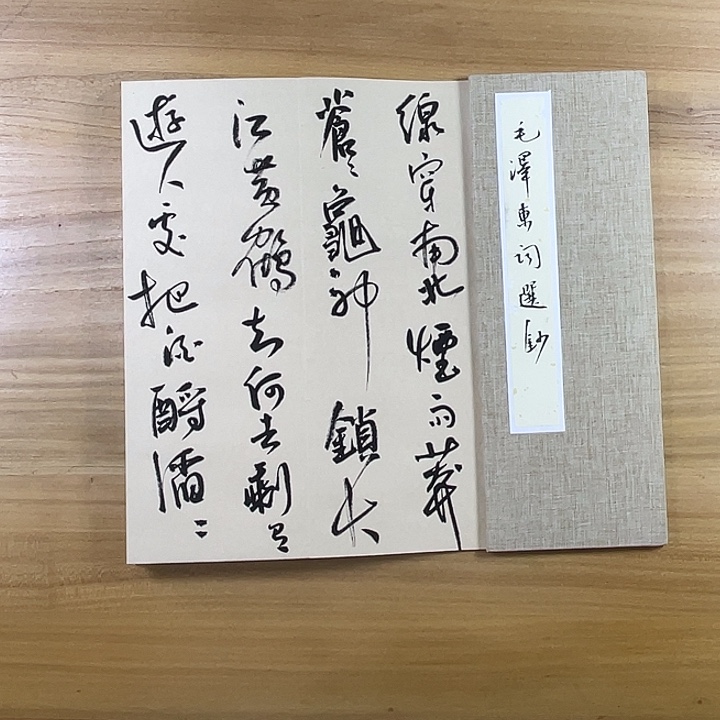 毛澤東詞選鈔
線穿南北煙雨莽
蒼〻龜蛇鎖大
江黃鶴知何去剩有
遊人處把酒酹滔〻